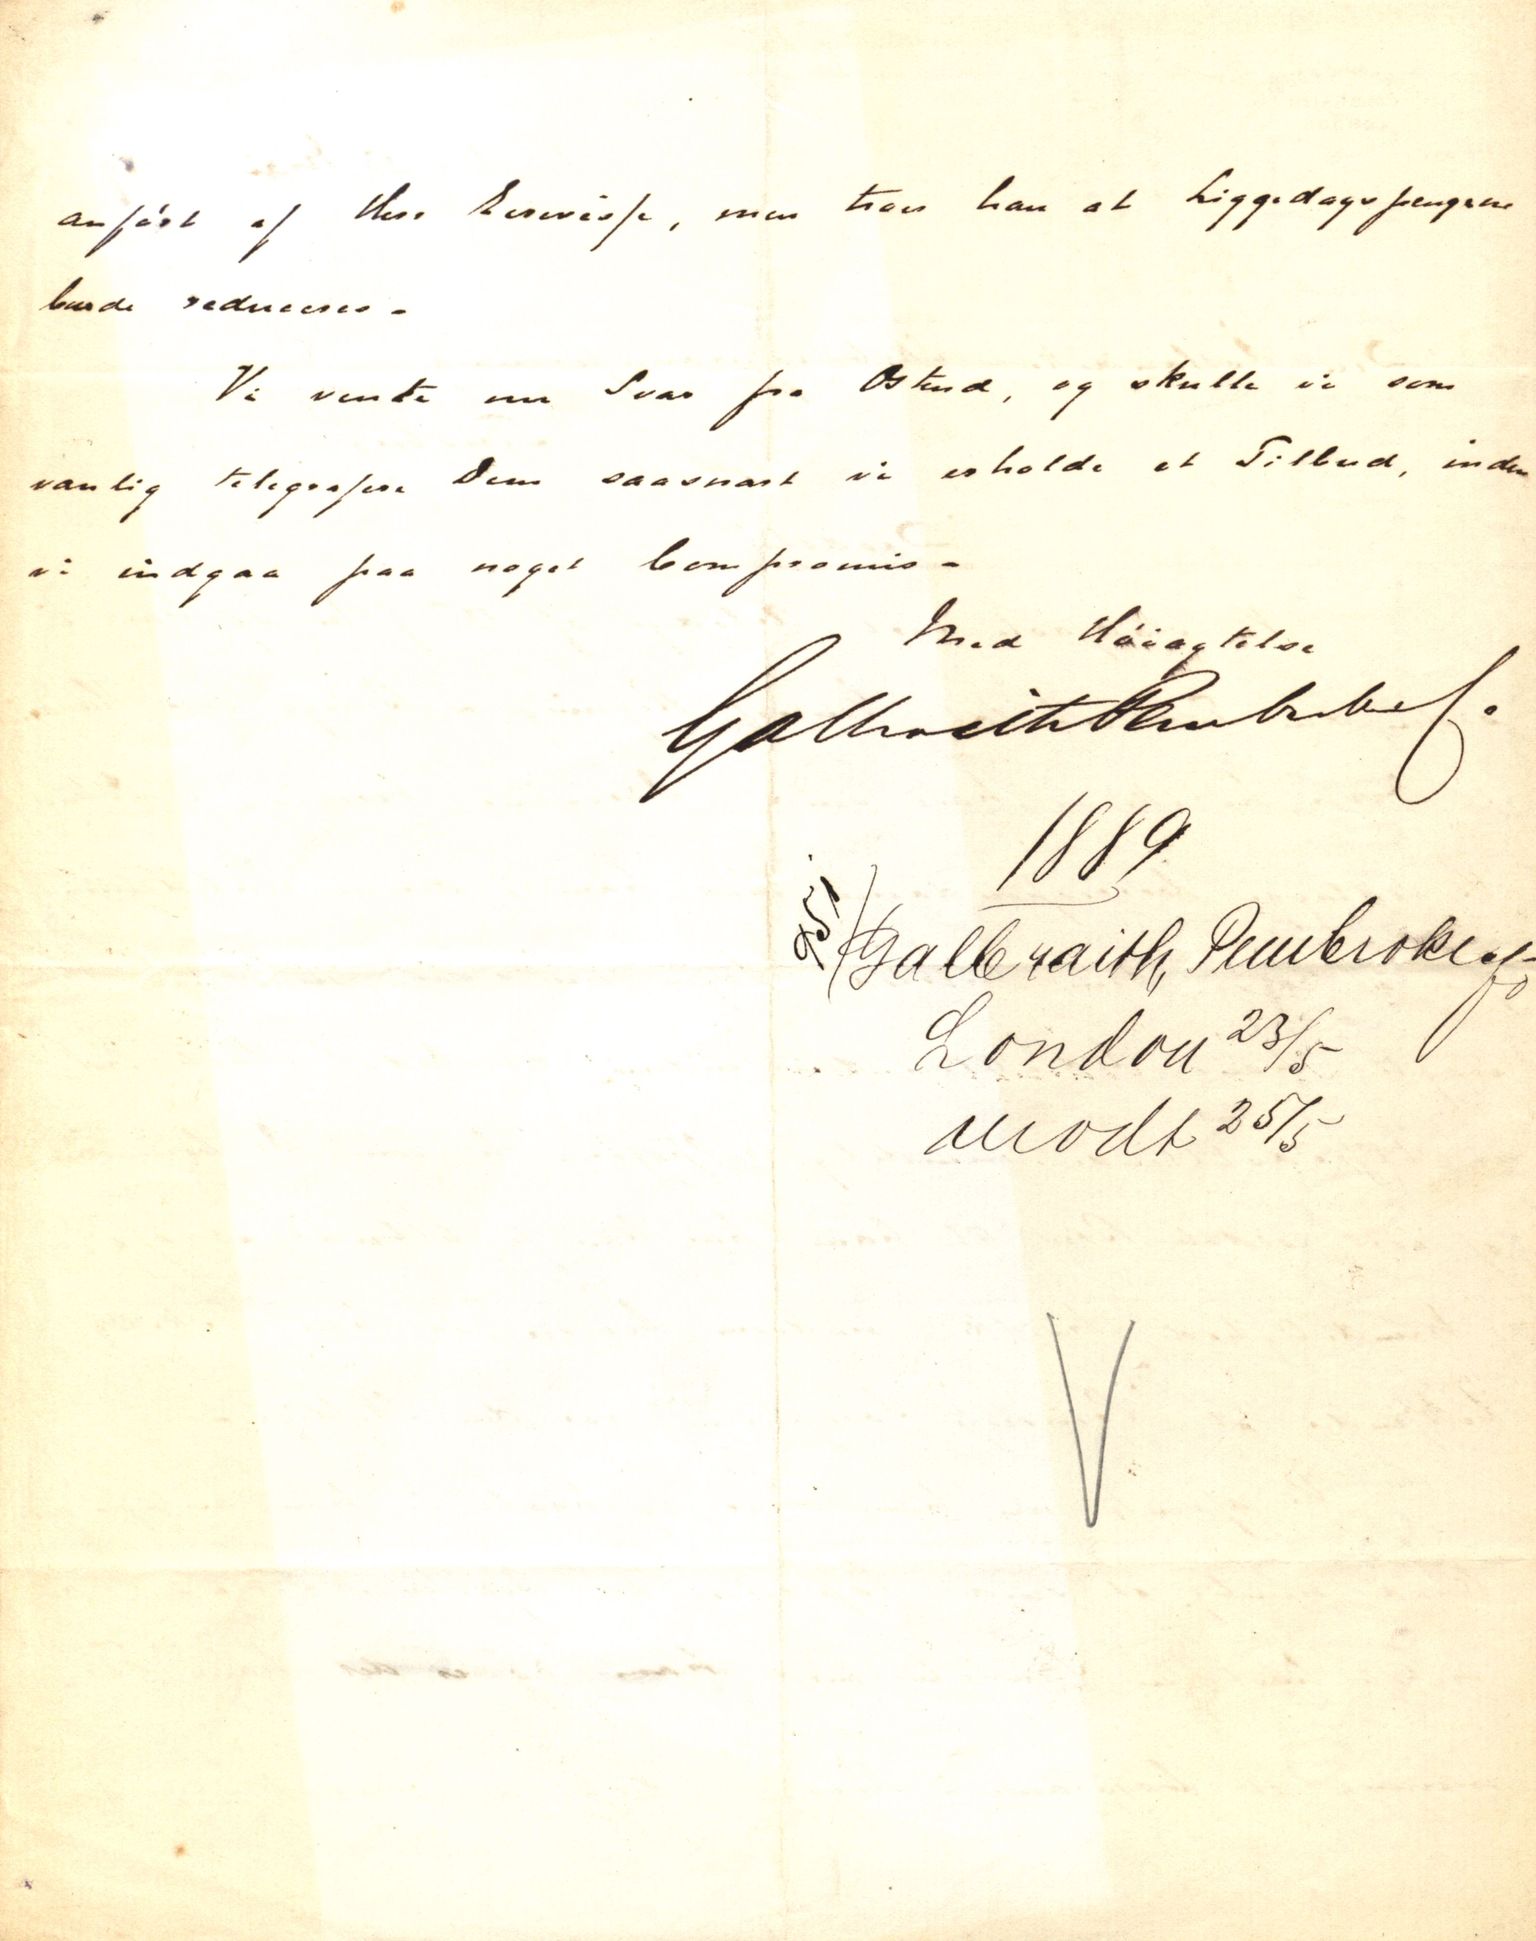 anført af Herr, men troer han at Liggedagspengene
burde reduceres.
Vi vente nu Svar fra Ostend, og skulle vi som
vanlig telegrafere Dem saasnart vi erholde et Tilbud, inden
vi indgaa paa noget Compromis.
Med Høiagtelse
Galbraith Pembroke & Co.
1889
Galbraith, Pembroke & Co
London 23/5
modt 25/5